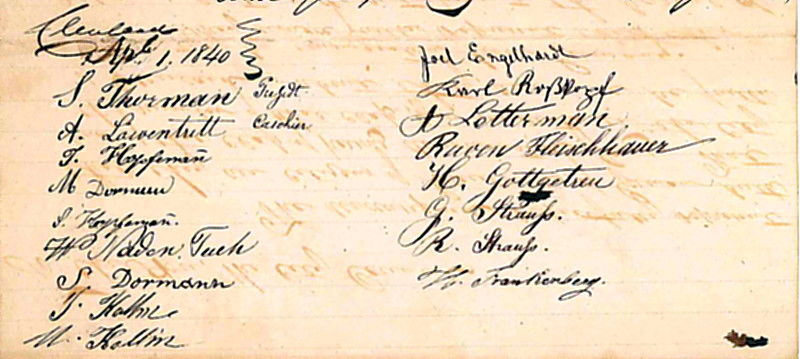 Cleveland
Apl. 1. 1840
S. Thorman Presdt.
A. Lowentritt Cashier
T. Hopfeman̄
M Dormenn
S. Hopfeman̄.
W. Naden. Tuch
S. Dormann
J. Kallm
M. Kollm
Joel Engelhardt
Karl Roßkopf
A Lotterman
Ruven Fleischhauer
H. Gottgetreu
G. Strauss.
R. Strauss.
W. Frankenberg.